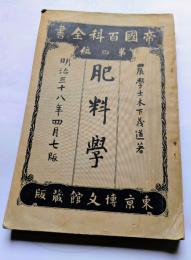 帝國百科全書
第四編
農學士木下義道著
肥料學
明治三十八年四月七版
東京博文館藏版